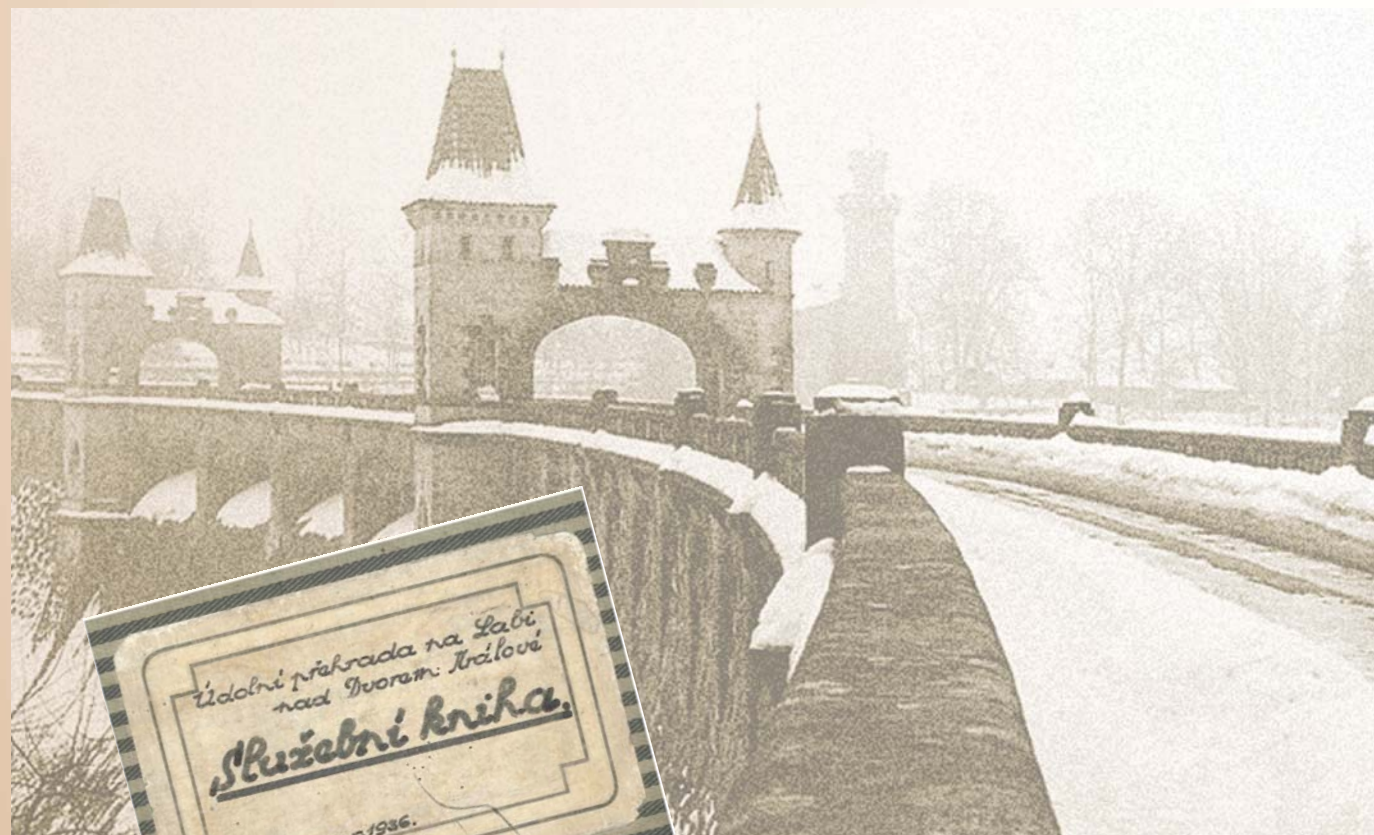 Údolní přehrada na Labi
nad Dvorem Králové
Služební kniha.
1936.